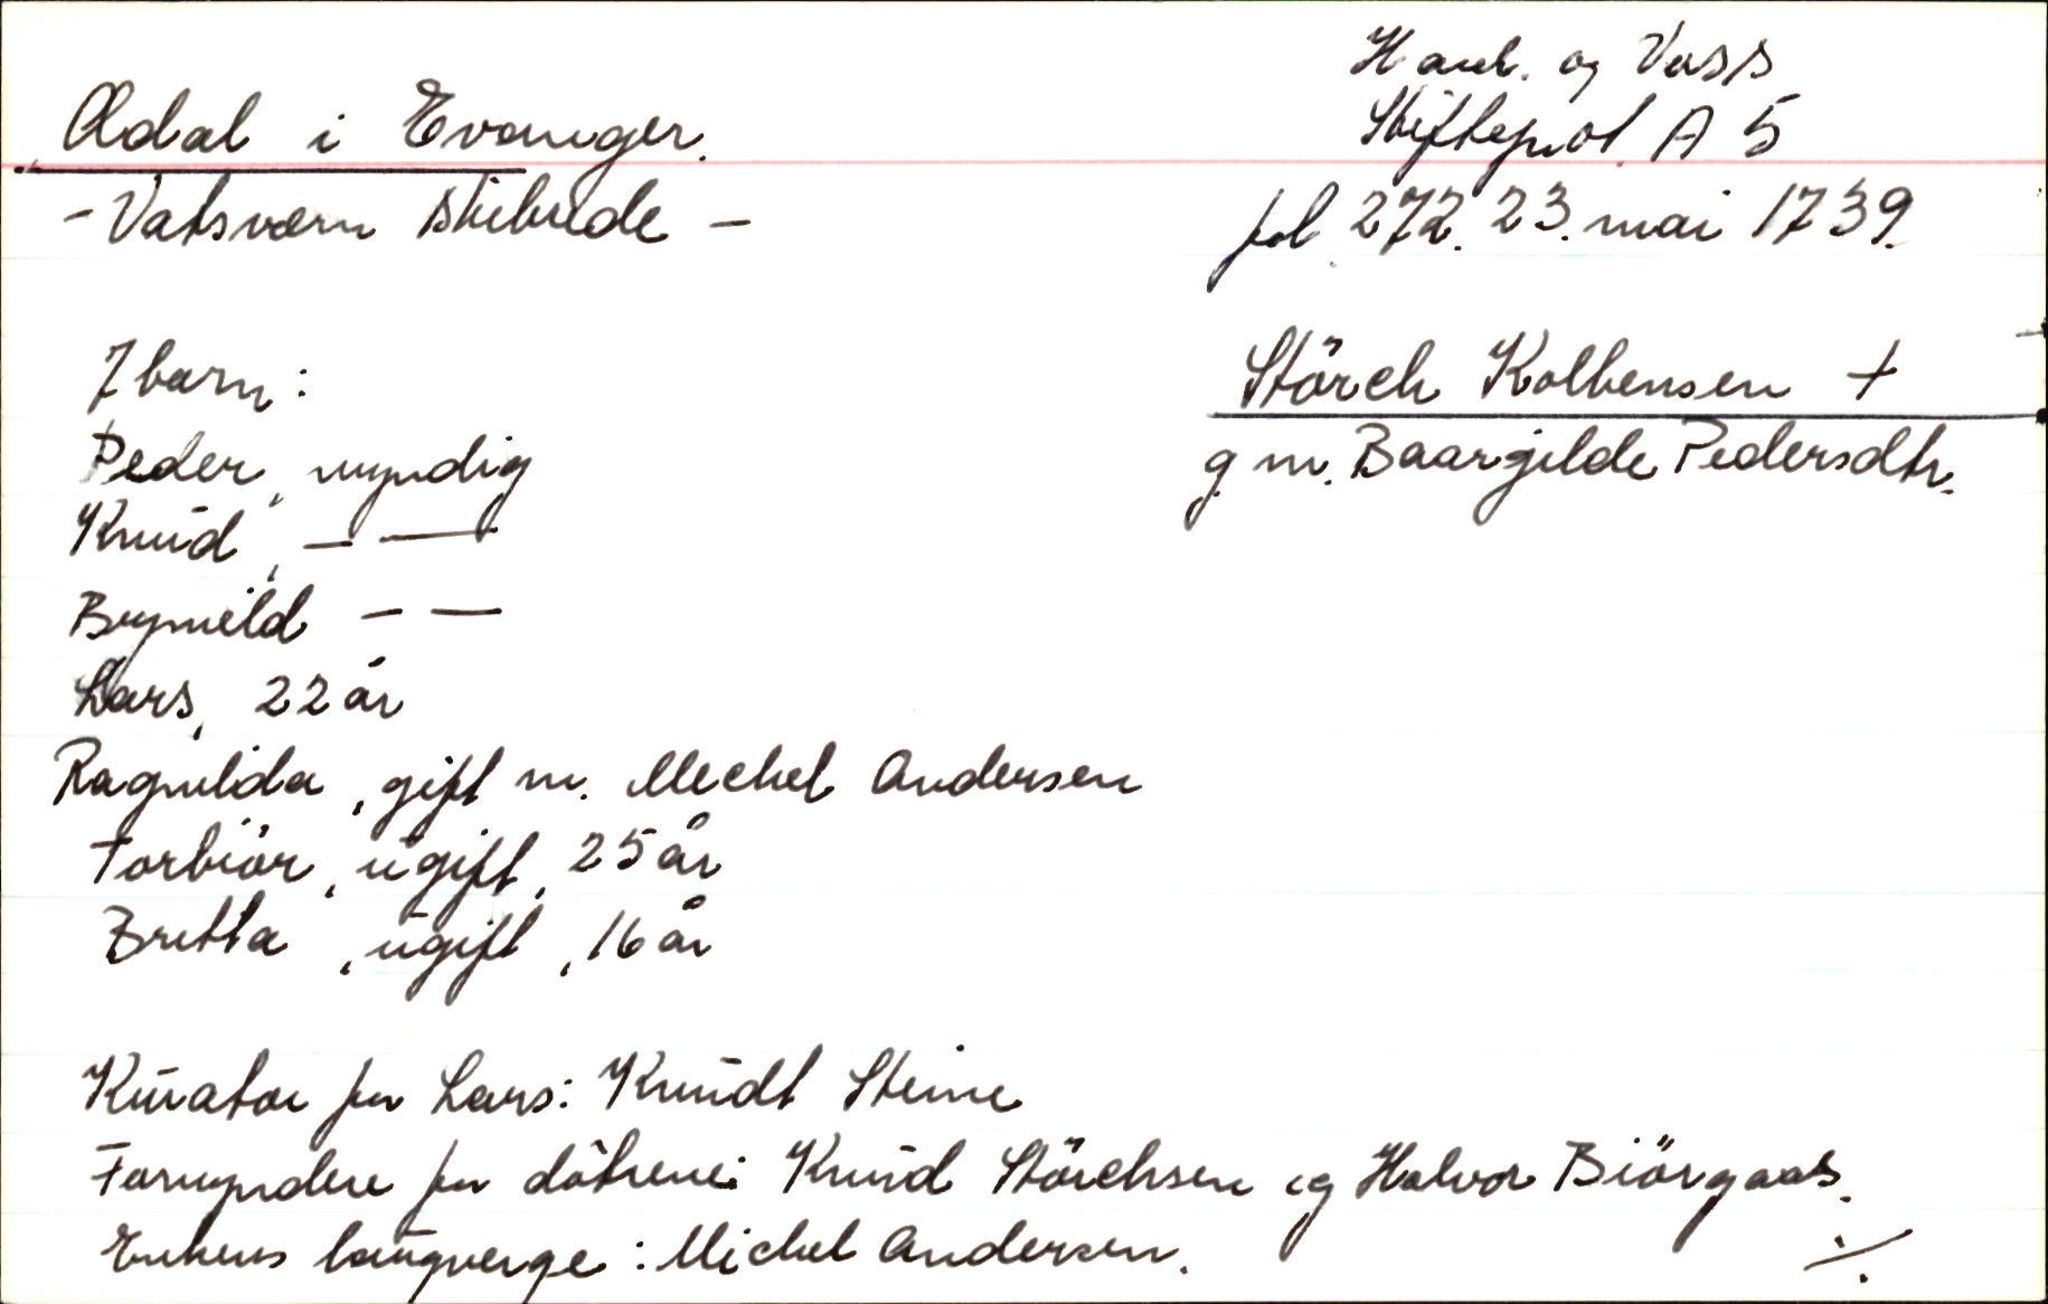 Ødal i Evanger.
- Vatsværn skibrede -
Hard. og Voss
Skifteprot. A 5
fol. 272. 23. mai 1739.
Störch Kolbensen +
g. m. Baargilde Pedersdtr.
7 barn:
Peder, myndig
Knud, - —
Brynild - —
Lars, 22 år
Ragnilda, gift m. Mechel Andersen
Torbiör, ugift, 25 år
Britta, ugift, 16 år
Kurator for Lars: Knudt Steine
Formyndere for döttrene: Knud Störchsen og Halvor Biörgaas.
Enkens laugverge: Michel Andersen.